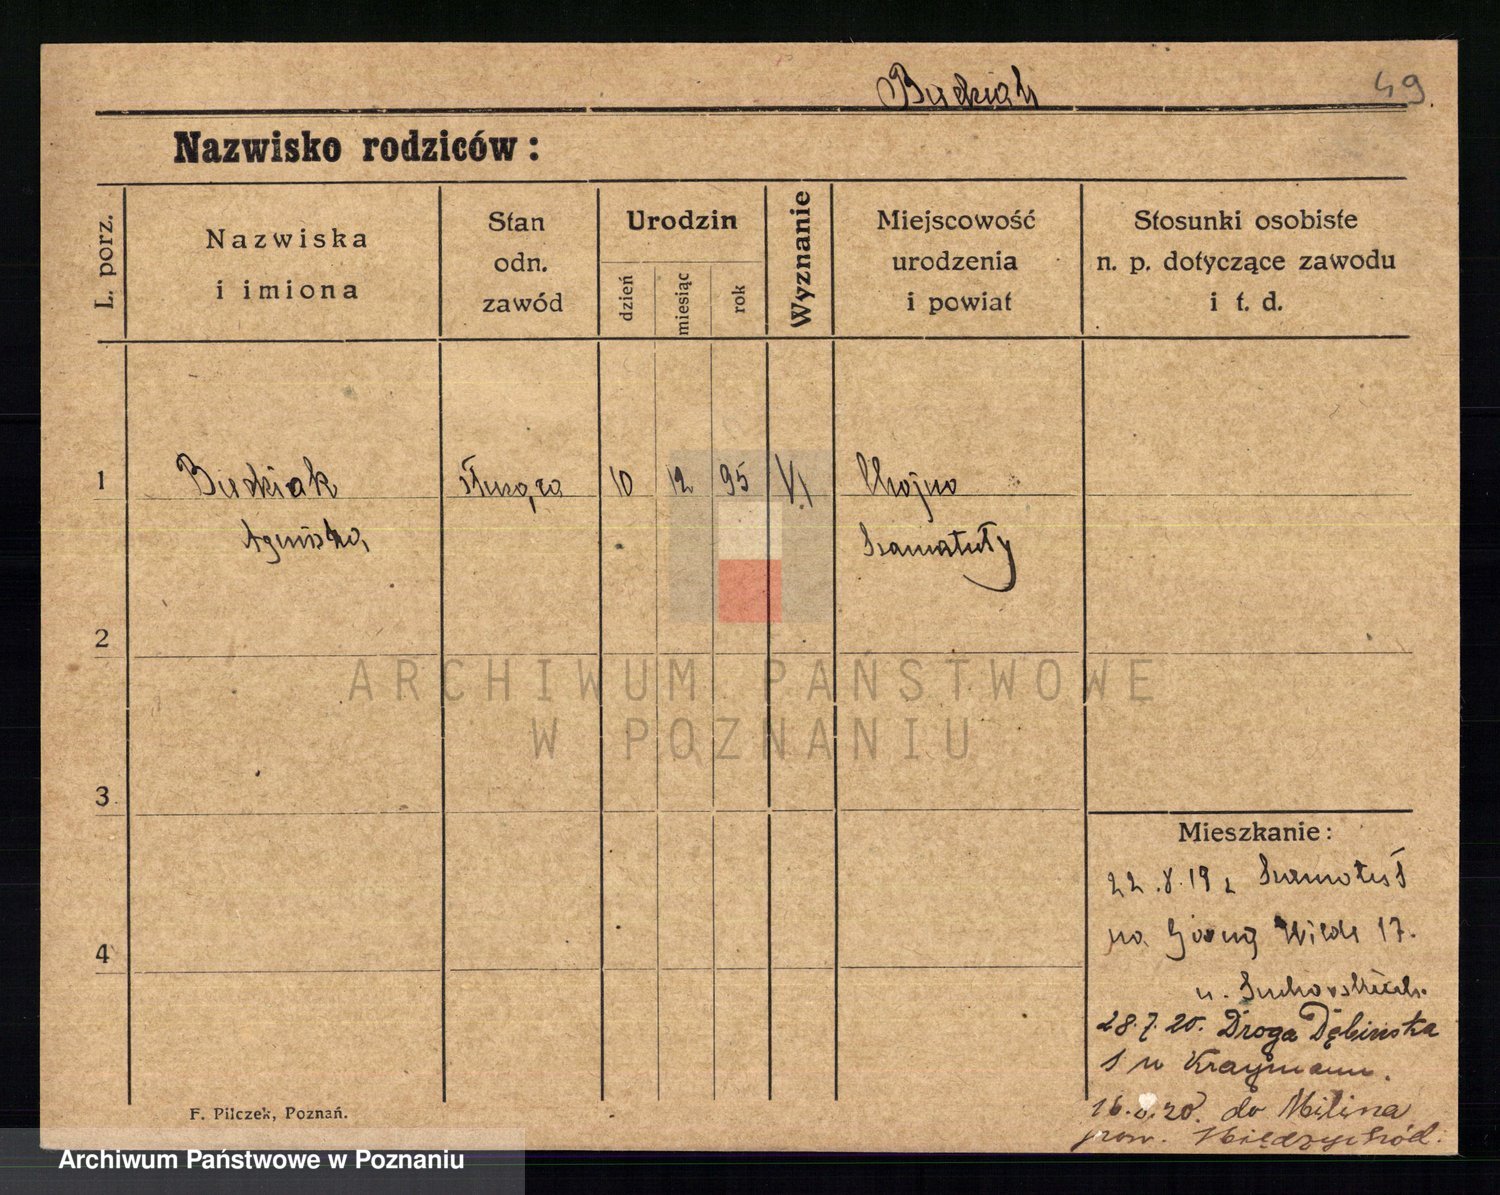 Budziak 49.
Nazwisko rodziców:
L. porz.
Nazwiska
i imiona
Stan
odn.
zawód
Urodzin
dzień
miesiąc
rok
Wyznanie
Miejscowość
urodzenia
i powiat
Stosunki osobiste
n. p. dotyczące zawodu
i t. d.
1 służąca 10 12 95 Chojno
Agniszka Szamotuły
2
ARCHIWUM PAŃSTWOWE
W POZNANIU
3
Mieszkanie:
22.8.19 z Szamotuł
4
na Górną Wilde 17.
u.
28.7.20. Droga Dębińska
1 u
16. .20. do Milina
pow. Międzychód.
F. Pilczek, Poznań.
Archiwum Państwowe w Poznaniu